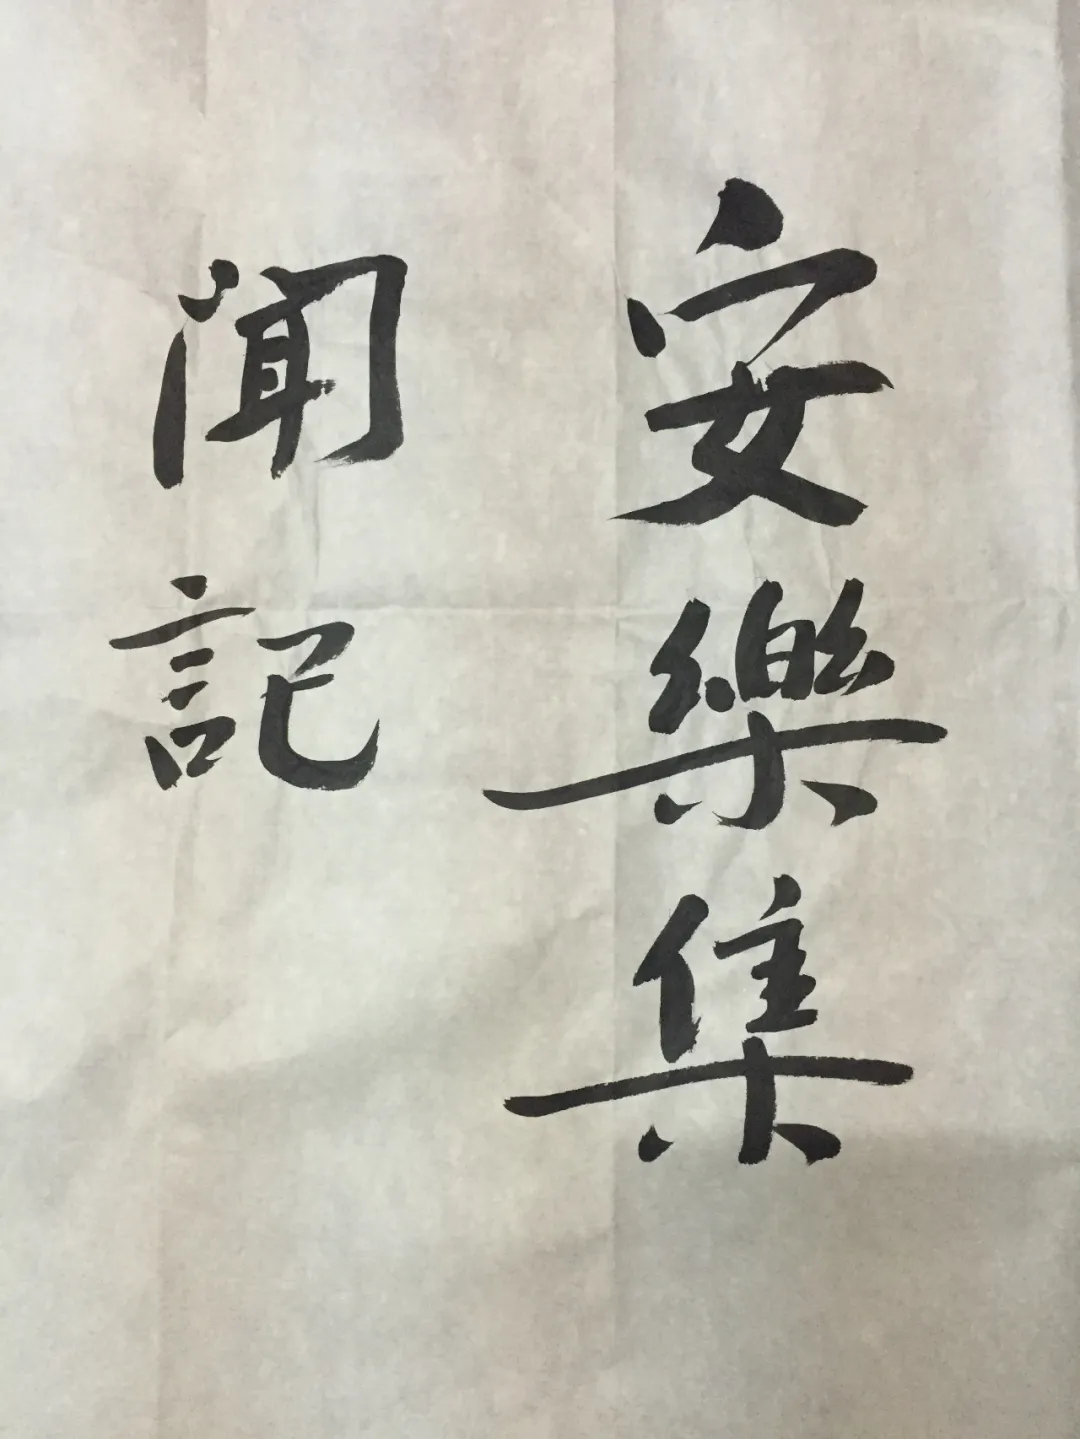 安樂集
闻記